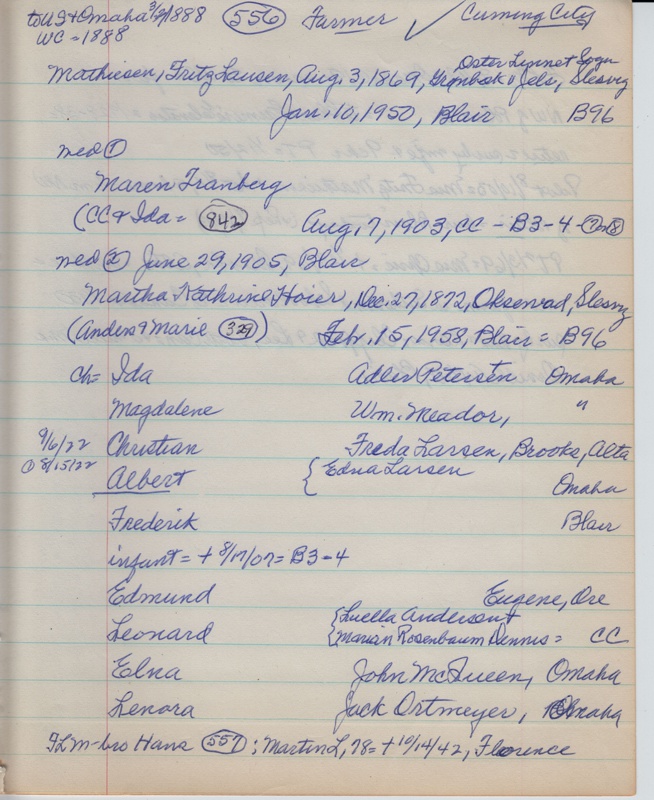 to US & Omaha 3/9/1888 (556) Farmer ✓ Cuming City
WC = 1888
Oster Linnet Sogn
Mathiesen, Fritz Lausen, Aug. 3, 1869, Grambek, Jels, Slesvig
Jan. 10, 1950, Blair B96
med ①
Maren Franberg
(CC & Ida = (842) Aug. 7, 1903, CC - B3-4
med ② June 29, 1905, Blair
Martha Kathrine Hoier, Dec. 27, 1872, Oksenvad, Slesvig
(Anders & Marie (329)) Feb. 15, 1958, Blair = B96
Ch = Ida Adler Petersen Omaha
Magdalene Wm. Meador, "
9/6/22 Christian Freda Larsen, Brooks, Alta
① 8/15/22 Albert { Edna Larsen Omaha
Frederik Blair
infant = + 8/17/07 = B3-4
Edmund Eugene, Ore
Leonard { Luella Anderson +
{ Marian Rosenbaum Dennis = CC
Elna John McQueen, Omaha
Lenora Jack Ortmeyer, Omaha
FLM - bro Hans (557) ; Martin L, 78 = + 10/14/42, Florence